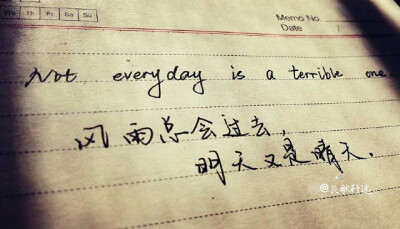 Memo No.
Date / /
We Th Fr Sa Su
Not everyday is a terrible one.
风雨总会过去,
明天又是晴天.